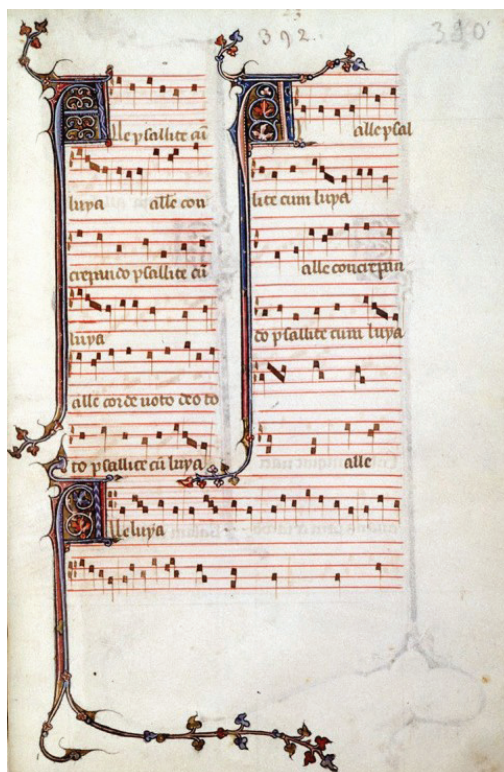 392.
Alle psallite cū
luya alle con
crepando psallite cū
luya
alle corde uoto deo to
to psallite cū luya
Alle psal
lite cum luya
alle concrepan
do psallite cum luya
alle
Alleluya